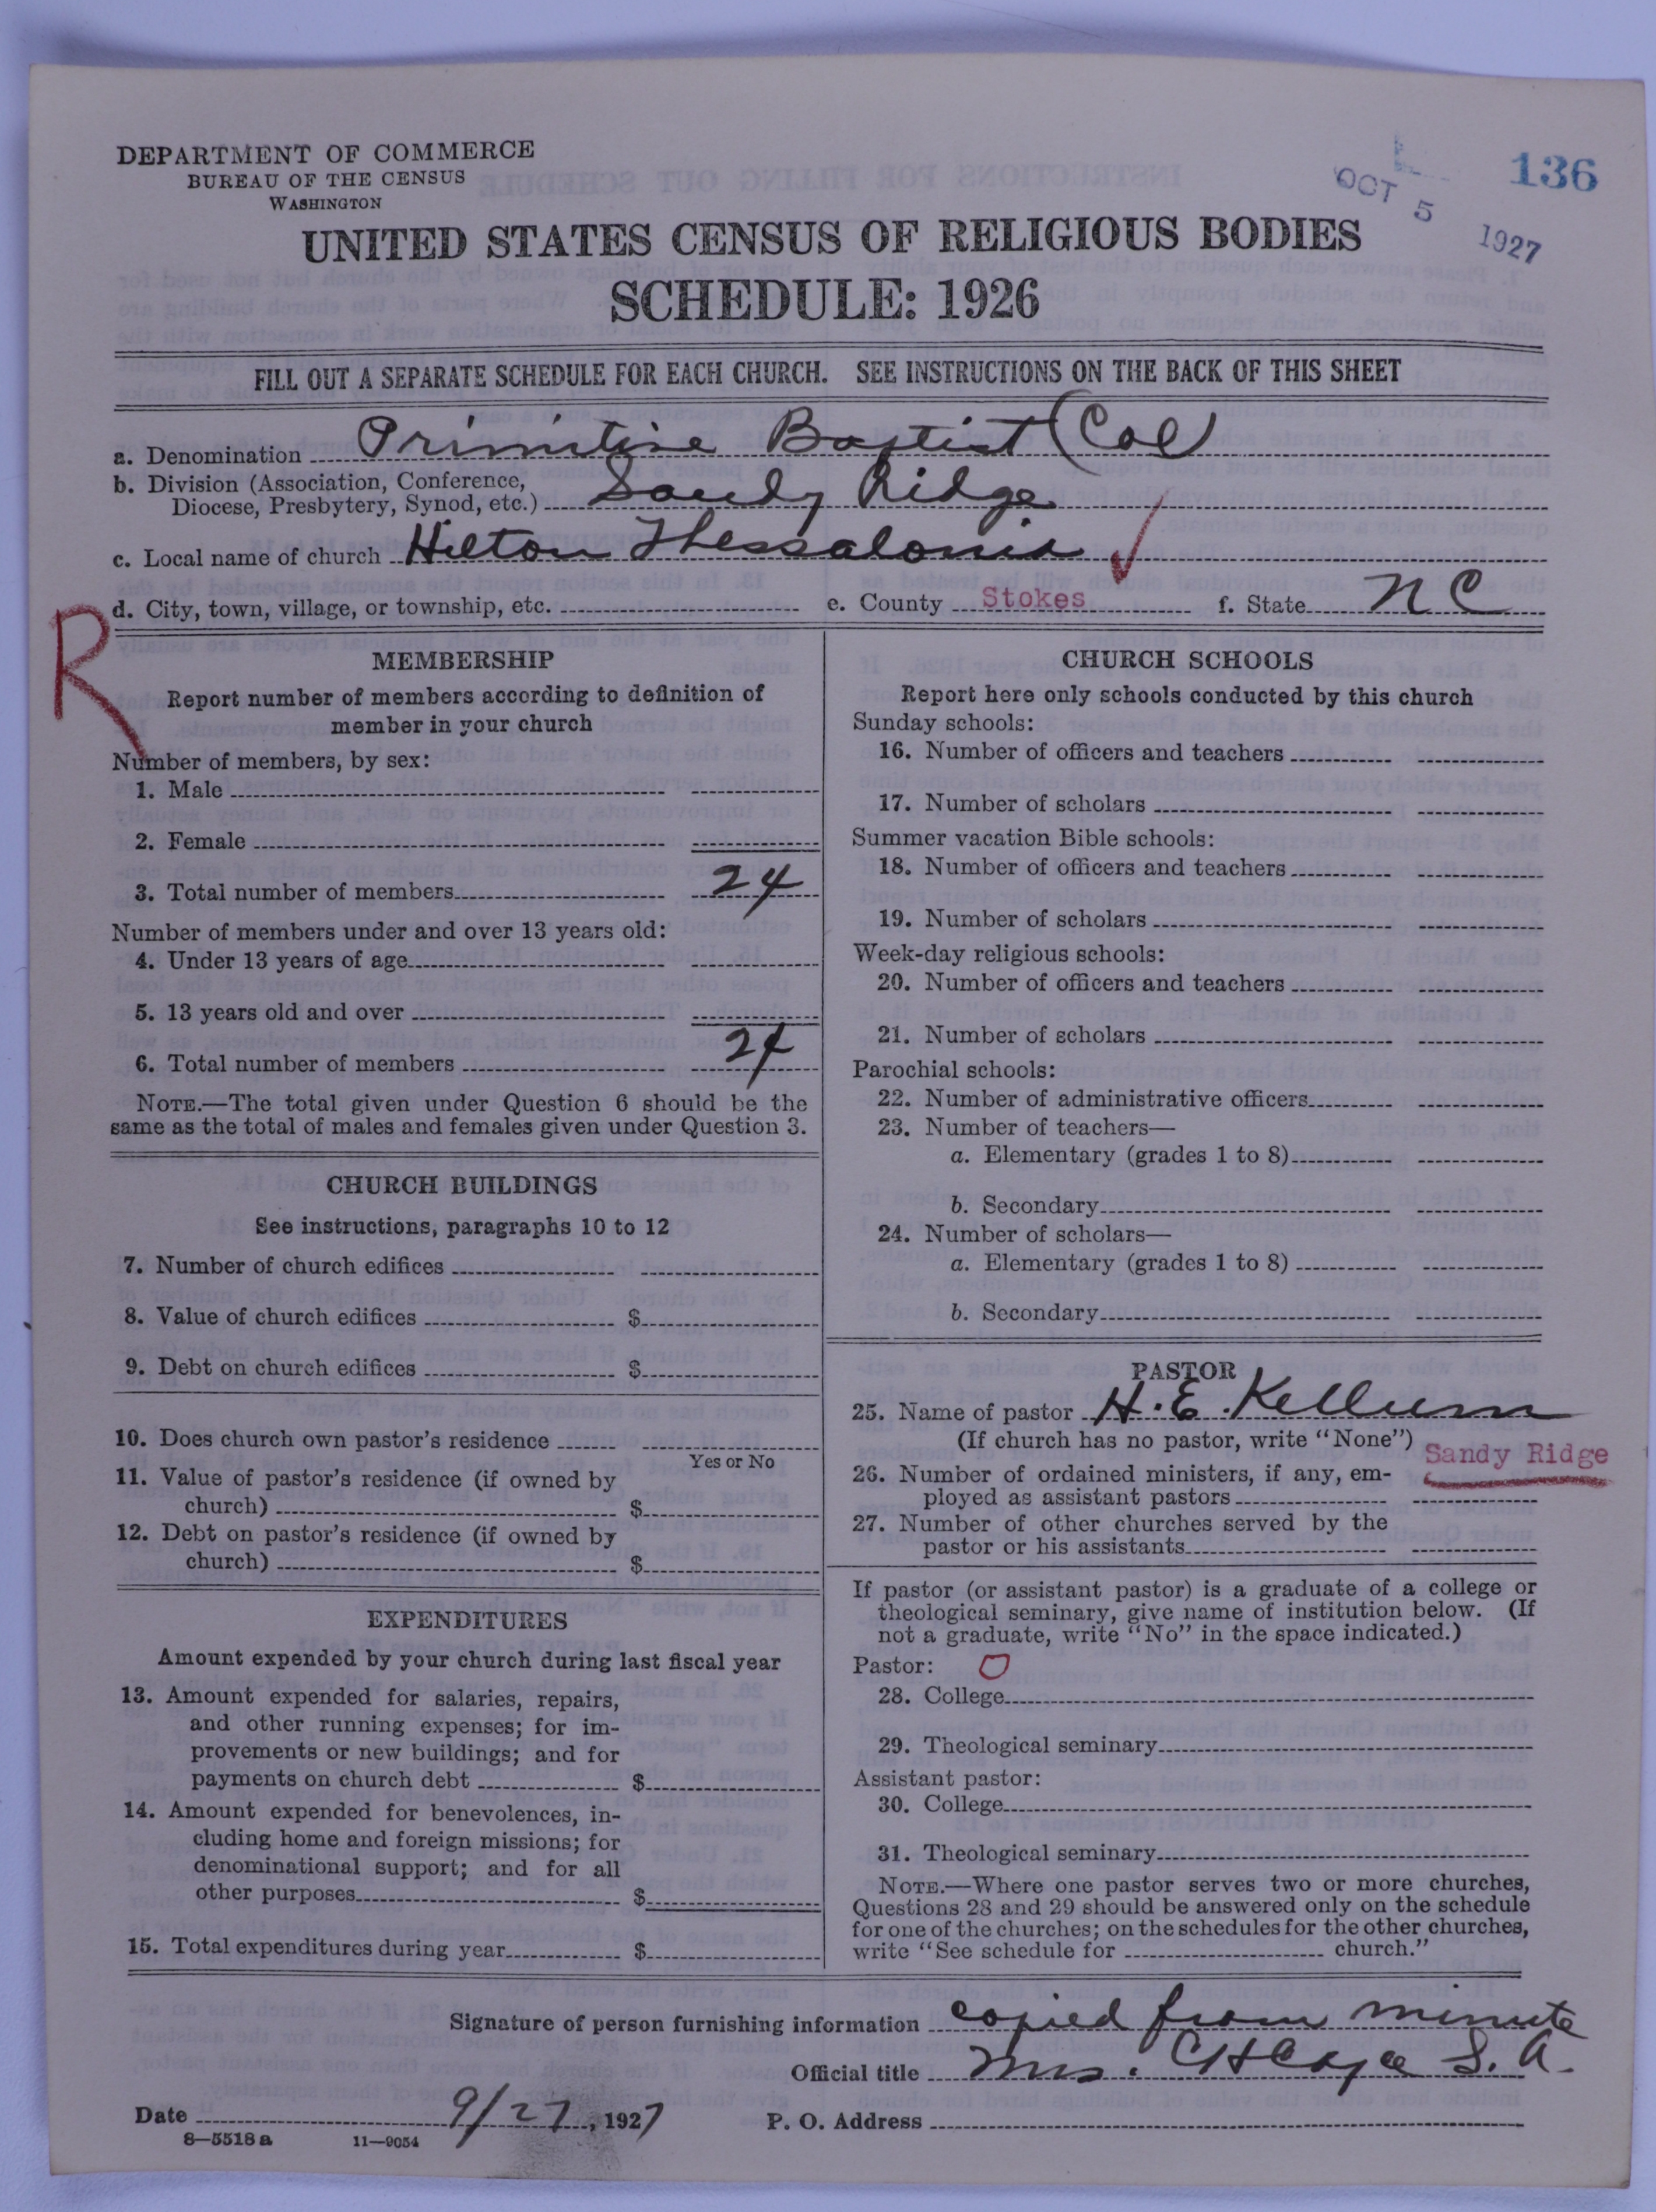 DEPARTMENT OF COMMERCE
BUREAU OF THE CENSUS
WASHINGTON
136
OCT 5 1927
UNITED STATES CENSUS OF RELIGIOUS BODIES
SCHEDULE: 1926
FILL OUT A SEPARATE SCHEDULE FOR EACH CHURCH. SEE INSTRUCTIONS ON THE BACK OF THIS SHEET
a. Denomination Primitive Baptist (Col)
b. Division (Association, Conference,
Diocese, Presbytery, Synod, etc.) Sandy Ridge
c. Local name of church Hilton Thessalonia
d. City, town, village, or township, etc. e. County Stokes f. State NC
R
MEMBERSHIP
Report number of members according to definition of
member in your church
Number of members, by sex:
1. Male
2. Female
3. Total number of members 24
Number of members under and over 13 years old:
4. Under 13 years of age
5. 13 years old and over
6. Total number of members 24
NOTE.—The total given under Question 6 should be the
same as the total of males and females given under Question 3.
CHURCH BUILDINGS
See instructions, paragraphs 10 to 12
7. Number of church edifices
8. Value of church edifices $
9. Debt on church edifices $
10. Does church own pastor's residence
Yes or No
11. Value of pastor's residence (if owned by
church) $
12. Debt on pastor's residence (if owned by
church) $
EXPENDITURES
Amount expended by your church during last fiscal year
13. Amount expended for salaries, repairs,
and other running expenses; for im-
provements or new buildings; and for
payments on church debt $
14. Amount expended for benevolences, in-
cluding home and foreign missions; for
denominational support; and for all
other purposes $
15. Total expenditures during year $
CHURCH SCHOOLS
Report here only schools conducted by this church
Sunday schools:
16. Number of officers and teachers
17. Number of scholars
Summer vacation Bible schools:
18. Number of officers and teachers
19. Number of scholars
Week-day religious schools:
20. Number of officers and teachers
21. Number of scholars
Parochial schools:
22. Number of administrative officers
23. Number of teachers—
a. Elementary (grades 1 to 8)
b. Secondary
24. Number of scholars—
a. Elementary (grades 1 to 8)
b. Secondary
PASTOR
25. Name of pastor H. E. Kellum
(If church has no pastor, write "None") Sandy Ridge
26. Number of ordained ministers, if any, em-
ployed as assistant pastors
27. Number of other churches served by the
pastor or his assistants
If pastor (or assistant pastor) is a graduate of a college or
theological seminary, give name of institution below. (If
not a graduate, write "No" in the space indicated.)
Pastor:
28. College
29. Theological seminary
Assistant pastor:
30. College
31. Theological seminary
NOTE.—Where one pastor serves two or more churches,
Questions 28 and 29 should be answered only on the schedule
for one of the churches; on the schedules for the other churches,
write "See schedule for church."
Signature of person furnishing information copied from minute
Official title Mrs. S. A.
Date 9/27, 1927 P. O. Address
8—5518 a 11—9054